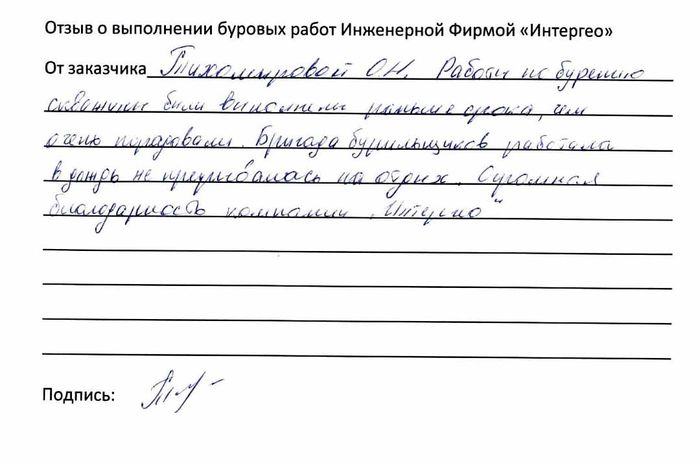 Отзыв о выполнении буровых работ Инженерной Фирмой «Интергео»
От заказчика Тихомировой О.Н. Работы по бурению
скважины были выполнены раньше срока, чем
очень порадовали. Бригада бурильщиков работала
в дождь не прерывалась на отдых. Огромная
благодарность компании „Интергео"
Подпись: